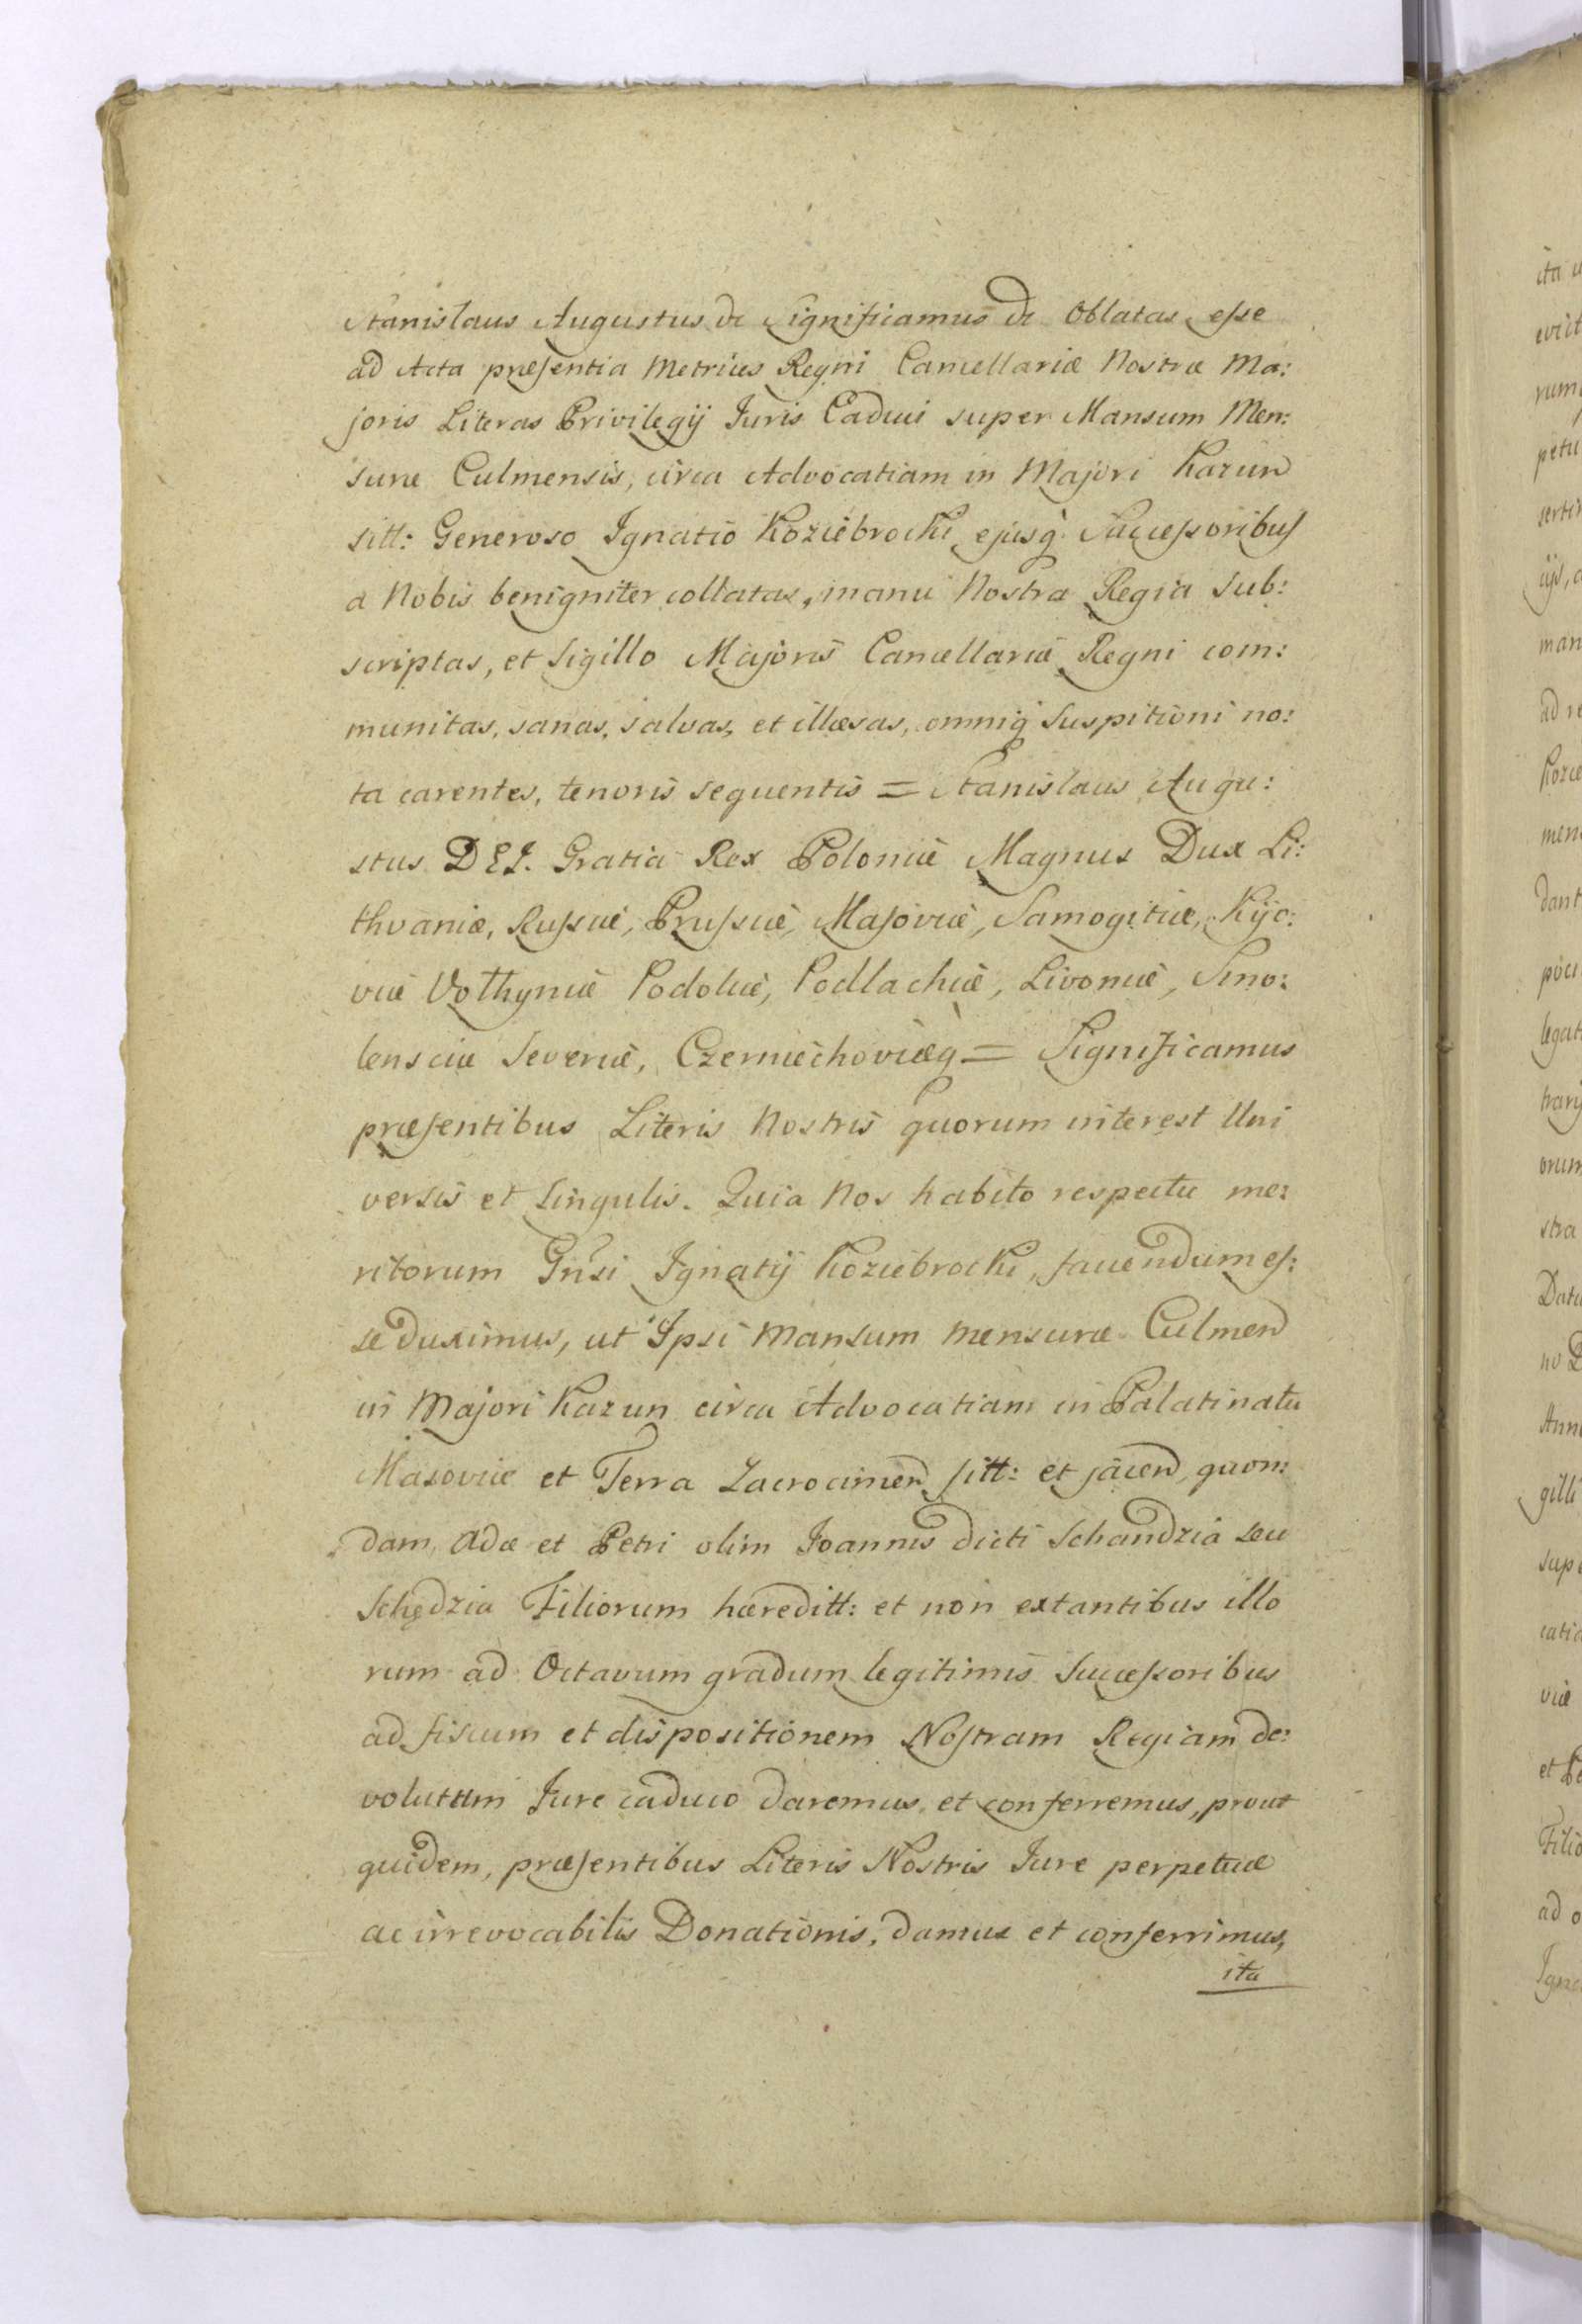 Stanislaus Augustus &c Significamus &c Oblatas esse
ad Acta præsentia Metrices Regni Cancellariæ Nostræ Ma:
joris Literas Privilegij Juris Caduci super Mansum Men:
suræ Culmensis, circa Advocatiam in Majori Kazun
sitt: Generoso Ignatio Koziebrocki ejusq̀ Successoribus
a Nobis benigniter collatas, manu Nostra Regia sub:
scriptas, et Sigillo Majoris Cancellariæ Regni com:
munitas, sanas, salvas, et illæsas, omniq̀ Suspitioni no:
ta carentes, tenoris sequentis = Stanislaus Augu:
stus DEI. Gratia Rex Poloniæ Magnus Dux Li:
thvaniæ, Russiæ, Prussiæ, Masoviæ, Samogitiæ, Kijo:
viæ Volhyniæ Podoliæ, Podlachiæ, Livoniæ, Smo:
lensciæ Severiæ, Czerniechoviæq̀ = Significamus
præsentibus Literis Nostris quorum interest Uni
versis et Singulis. Quia Nos habito respectu me:
ritorum Gnsi Ignatij Koziebrocki, favendum es:
se duximus, ut Ipsi Mansum mensuræ Culmen
in Majori Kazun circa Advocatiam in Palatinatu
Masoviæ et Terra Zacrocimen sitt: et jacen, quon:
dam, Adæ et Petri olim Joannis dicti Schandzia seu
Schędzia Filiorum hæreditt: et non extantibus illo
rum ad Octavum gradum legitimis Successoribus
ad fiscum et dispositionem Nostram Regiam de:
volutum Jure caduco daremus et conferremus, prout
quidem, præsentibus Literis Nostris Jure perpetuæ
ac irrevocabilis Donationis, damus et conferrimus,
ita